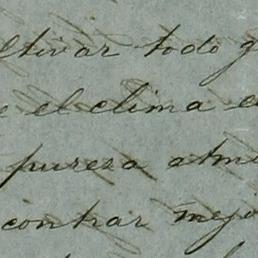 ltivar todo g
e el clima e
pureza atm
contrar mejo